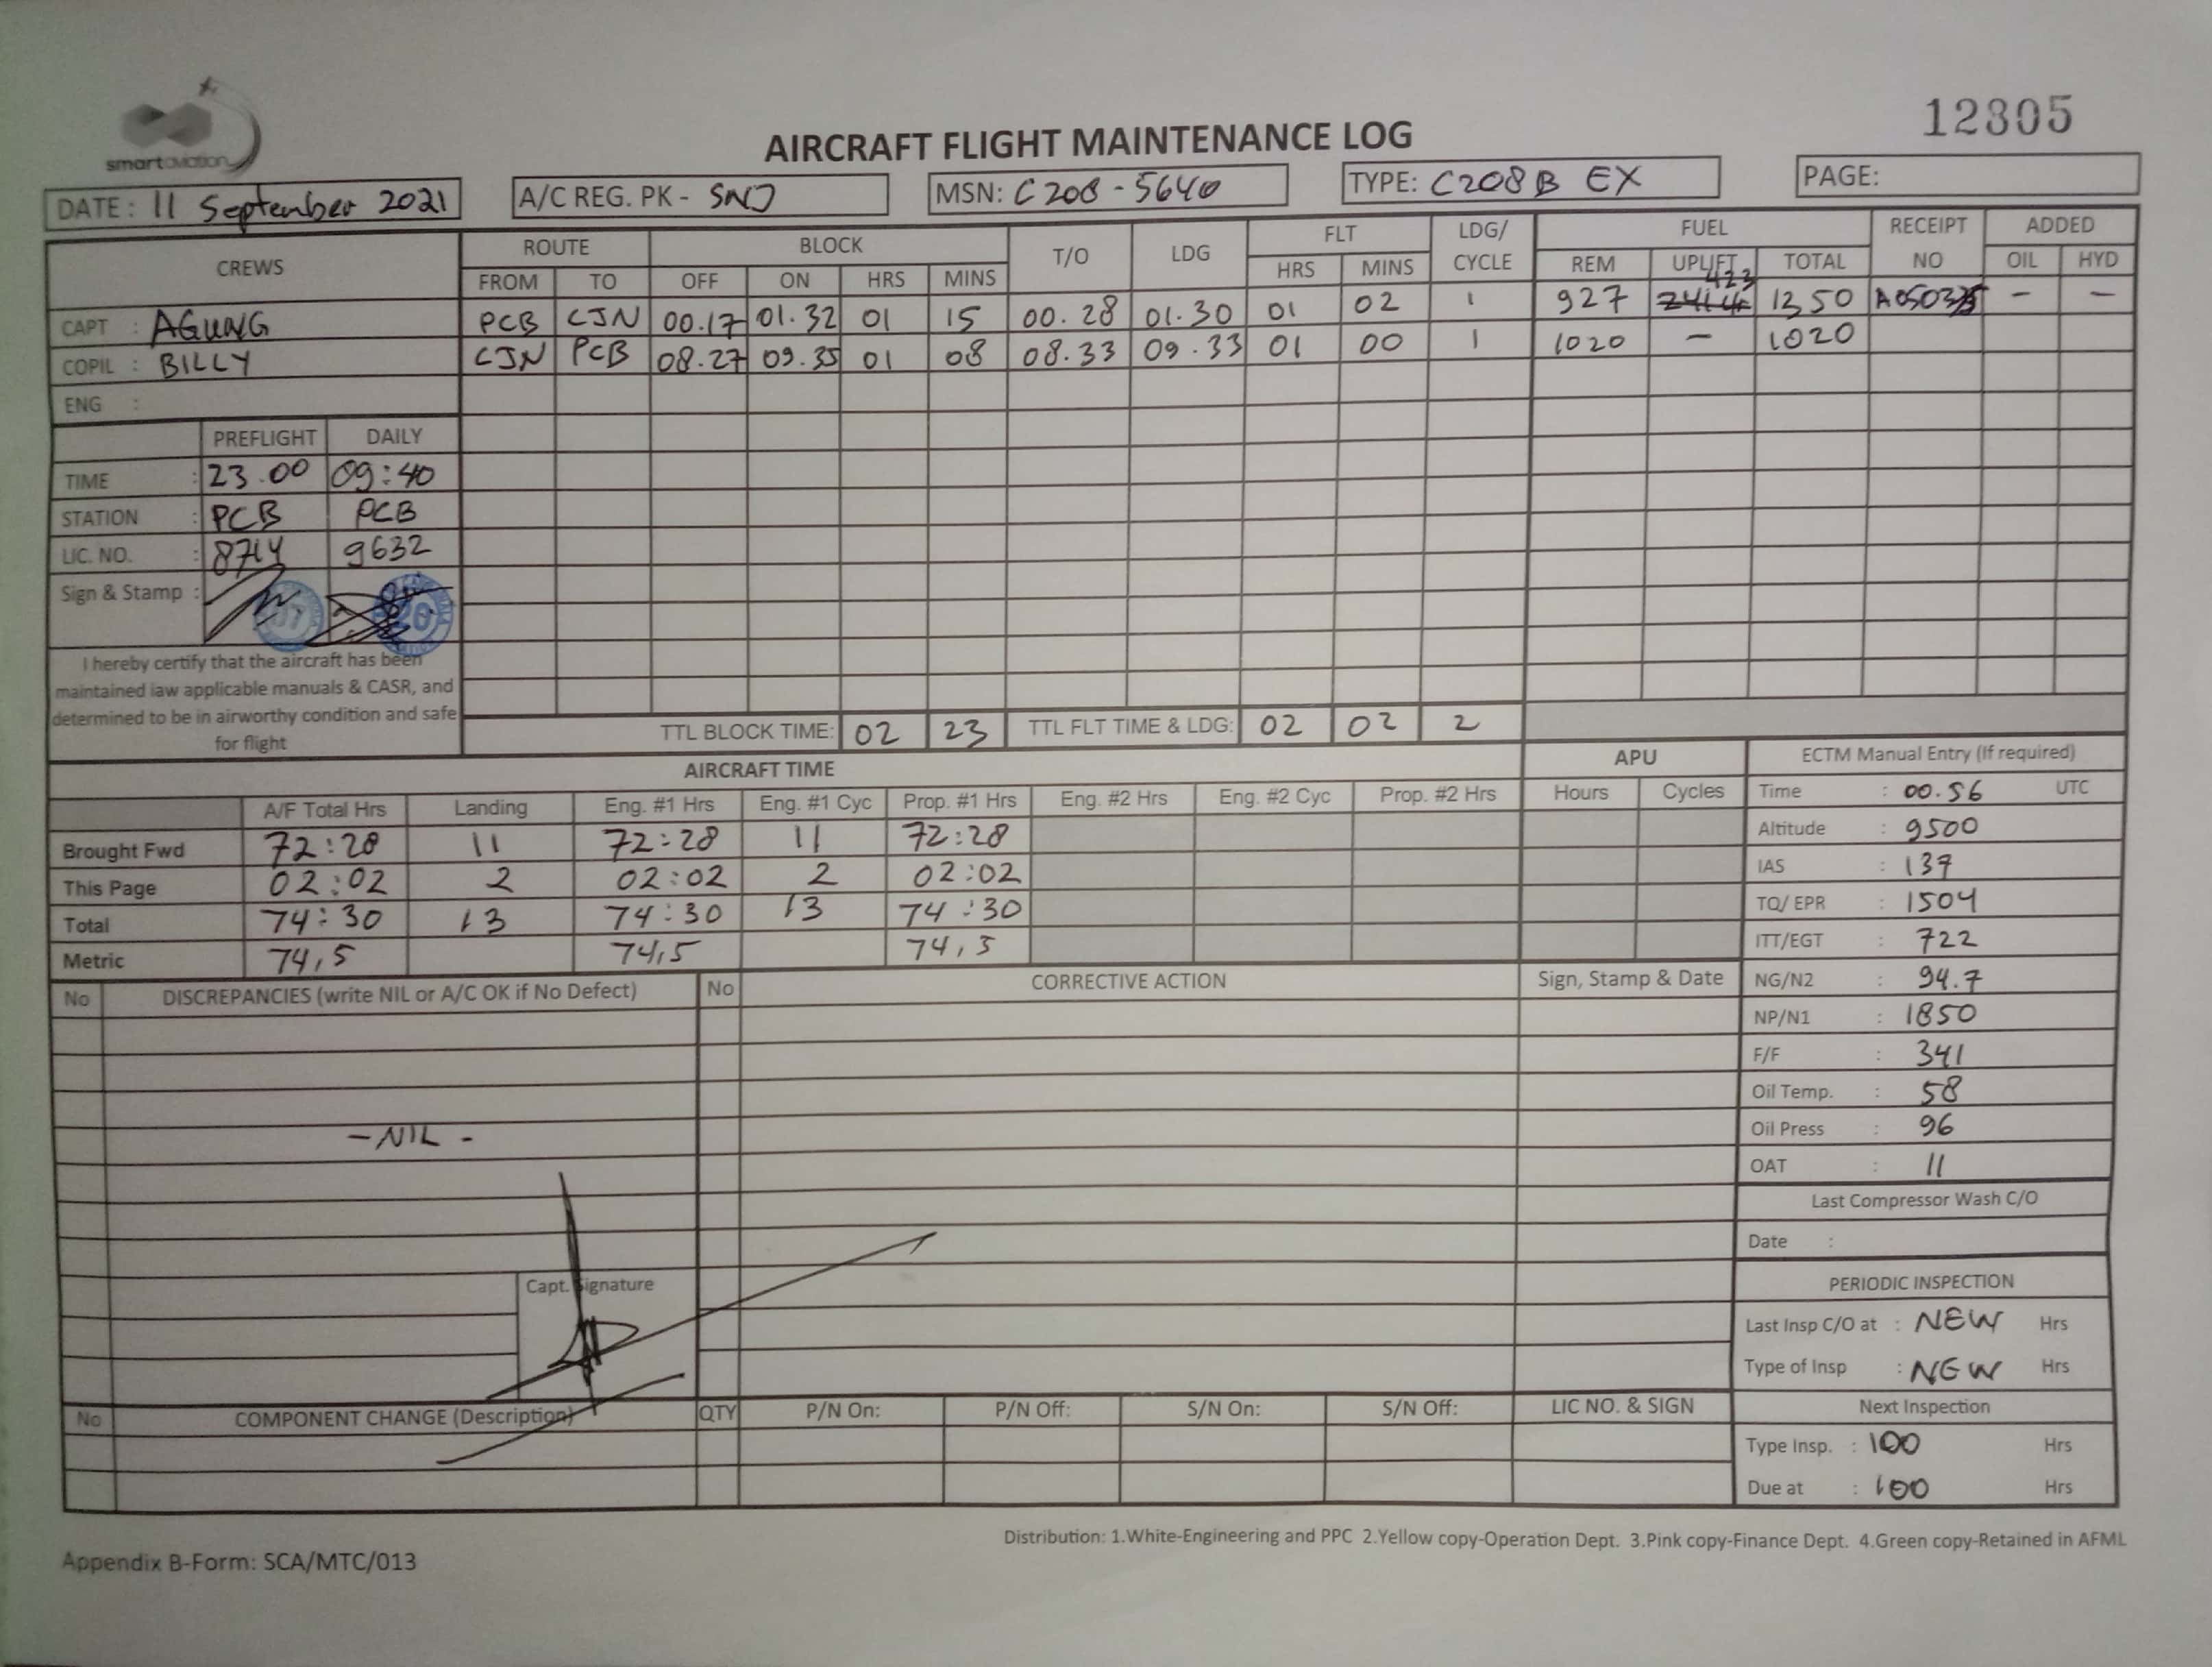 smartaviation
12305
AIRCRAFT FLIGHT MAINTENANCE LOG
DATE : 11 September 2021
A/C REG. PK - SNJ
MSN: C208 - 5640
TYPE: C208B EX
PAGE:
CREWS ROUTE BLOCK T/O LDG FLT LDG/ CYCLE FUEL RECEIPT NO ADDED
FROM TO OFF ON HRS MINS HRS MINS REM UPLIFT TOTAL OIL HYD
423
CAPT : AGUNG PCB CJN 00.17 01.32 01 15 00.28 01.30 01 02 1 927 1350 - -
COPIL : BILLY CJN PCB 08.27 09.35 01 08 08.33 09.33 01 00 1 1020 - 1020
ENG :
PREFLIGHT DAILY
TIME : 23.00 09:40
STATION : PCB PCB
LIC. NO. : 8714 9632
Sign & Stamp :
I hereby certify that the aircraft has been
maintained iaw applicable manuals & CASR, and
determined to be in airworthy condition and safe
for flight
TTL BLOCK TIME: 02 23 TTL FLT TIME & LDG: 02 02 2
AIRCRAFT TIME APU
A/F Total Hrs Landing Eng. #1 Hrs Eng. #1 Cyc Prop. #1 Hrs Eng. #2 Hrs Eng. #2 Cyc Prop. #2 Hrs Hours Cycles
Brought Fwd 72:28 11 72:28 11 72:28
This Page 02:02 2 02:02 2 02:02
Total 74:30 13 74:30 13 74:30
Metric 74,5 74,5 74,5
ECTM Manual Entry (If required)
Time : 00.56 UTC
Altitude : 9500
IAS : 137
TQ/ EPR : 1504
ITT/EGT : 722
NG/N2 : 94.7
NP/N1 : 1850
F/F : 341
Oil Temp. : 58
Oil Press : 96
OAT : 11
Last Compressor Wash C/O
Date :
PERIODIC INSPECTION
Last Insp C/O at : NEW Hrs
Type of Insp : NEW Hrs
Next Inspection
Type Insp. : 100 Hrs
Due at : 100 Hrs
No DISCREPANCIES (write NIL or A/C OK if No Defect) No CORRECTIVE ACTION Sign, Stamp & Date
- NIL -
Capt. Signature
No COMPONENT CHANGE (Description) QTY P/N On: P/N Off: S/N On: S/N Off: LIC NO. & SIGN
Distribution: 1.White-Engineering and PPC 2.Yellow copy-Operation Dept. 3.Pink copy-Finance Dept. 4.Green copy-Retained in AFML
Appendix B-Form: SCA/MTC/013